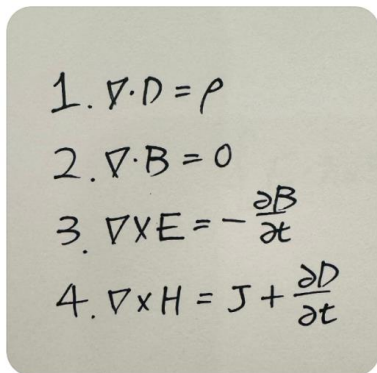 1. ∇·D = ρ
2. ∇·B = 0
3. ∇×E = -∂B/∂t
4. ∇×H = J + ∂D/∂t